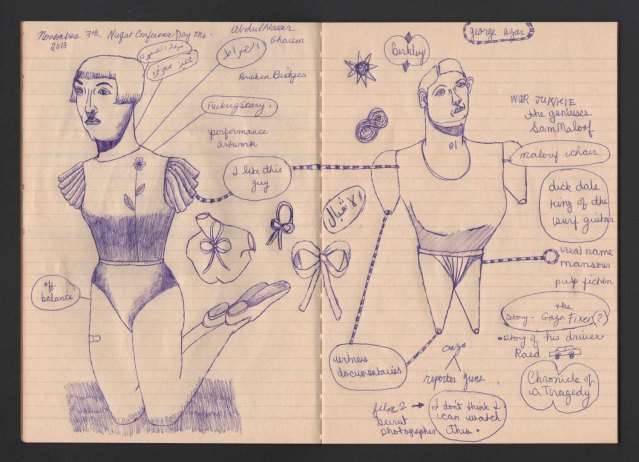 November 7th Nuqat Conference Day One.
2013
AbdulNasser
Gharem
الصراط
Broken Bridges
Fucking Scary.
performance
artwork
I like this
guy
off
balance
Berkley
george azar
WAR JUNKIE
the geniuses
Sam Maloof
maloof chair
dick dale
king of the
surf guitar
real name
mansour
pulp fiction
the
Story - Gaza Fixer (?)
story of his driver
Raed
Chronicle of
a Tragedy
witness
documentaries
gaza
reporter guns.
film 2 →
beirut
photographer
I don't think I
can watch
this.